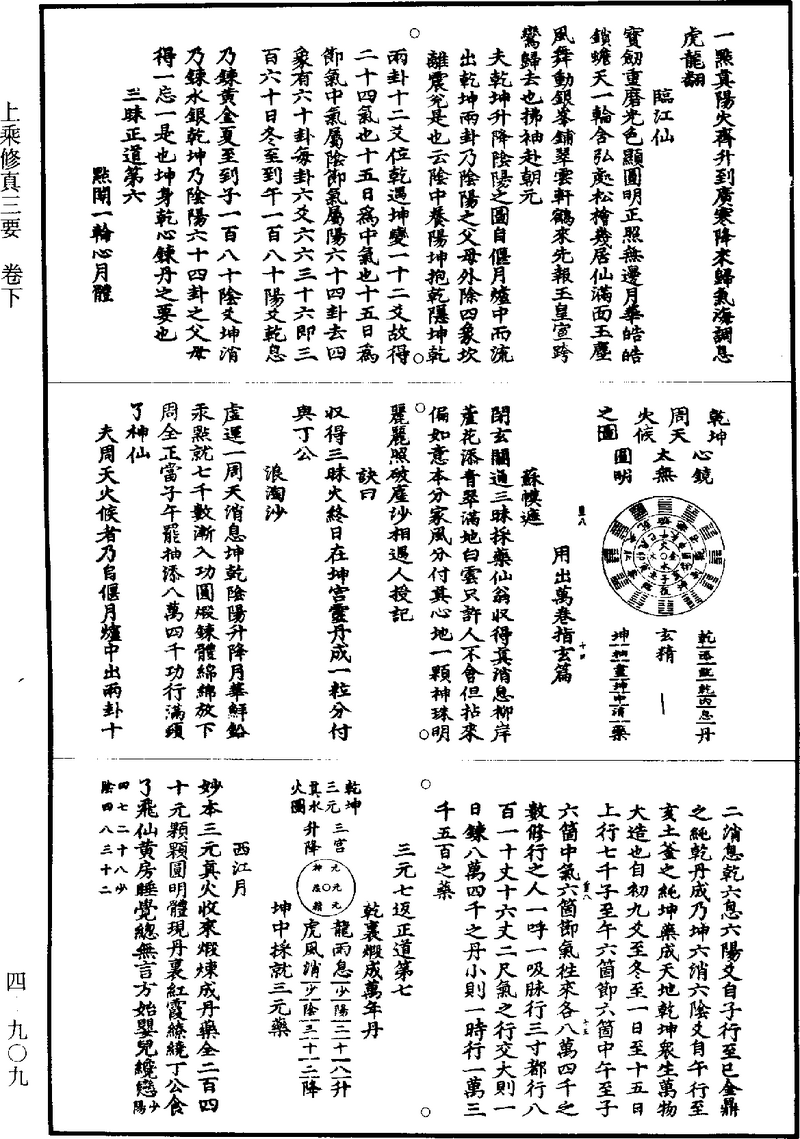 上乘修真三要　卷下
四·九〇九
一點真陽火齊升到廣寒降來歸氣海調息
虎龍翻
臨江仙
寶劒重磨光色顯圓明正照無邊月華皓皓
鎖蟾天一輪含弘處松檜幾居仙滿面玉塵
風舞動銀峯鋪翠雲軒鶴來先報玉皇宣跨
鸞歸去也拂袖赴朝元
夫乾坤升降陰陽之圖自偃月爐中而流
出乾坤兩卦乃陰陽之父母外除四象坎
離震兌是也云陰中養陽坤抱乾隱坤乾
兩卦十二爻位乾遇坤變一十二爻故得
二十四氣也十五日為中氣也十五日為
節氣中氣屬陰節氣屬陽六十四卦去四
象有六十卦每卦六爻六六三十六即三
百六十日冬至到午一百八十陽爻乾息
乃鍊黃金夏至到子一百八十陰爻坤消
乃鍊水銀乾坤乃陰陽六十四卦之父母
得一忘一是也坤身乾心鍊丹之要也
三昧正道第六
點開一輪心月體
乾坤心鏡
周天太無
火候圓明
之圖
乾
息
乾
丙
息
丹
玄精
坤
畫
坤
中
消
藥
用出萬卷指玄篇
蘇幙遮
閉玄關通三昧採藥仙翁收得真消息柳岸
蘆花添青翠滿地白雲只許人不會但拈來
偏如意本分家風分付真心地一顆神珠明
麗麗照破塵沙相遇人授記
訣曰
收得三昧火終日在坤宮靈丹成一粒分付
與丁公
浪淘沙
虛運一周天消息坤乾陰陽升降月華鮮鉛
汞點就七千數漸入功圓煅鍊體綿綿放下
周全正當子午罷抽添八萬四千功行滿頭
了神仙
夫周天火候者乃自偃月爐中出兩卦十
二消息乾六息六陽爻自子行至巳金鼎
之純乾丹成乃坤六消六陰爻自午行至
亥土釜之純坤藥成天地乾坤衆生萬物
大造也自初九爻至冬至一日至十五日
上行七千子至午六箇節六箇中午至子
六箇中氣六箇節氣往來各八萬四千之
數修行之人一呼一吸脉行三寸都行八
百一十丈十六丈二尺氣之行交大則一
日鍊八萬四千之丹小則一時行一萬三
千五百之藥
三元七返正道第七
乾裏煅成萬年丹
乾坤三宮
三元
真水升降
火圖
龍雨息少陽二十八升
虎風消少陰三十二降
坤中採就三元藥
西江月
妙本三元真火收來煅煉成丹藥全二百四
十元顆顆圓明體現丹裏紅霞繚繞丁公食
了飛仙黃房睡覺總無言方始嬰兒纔戀少陽
四七二十八少
陰四八三十二